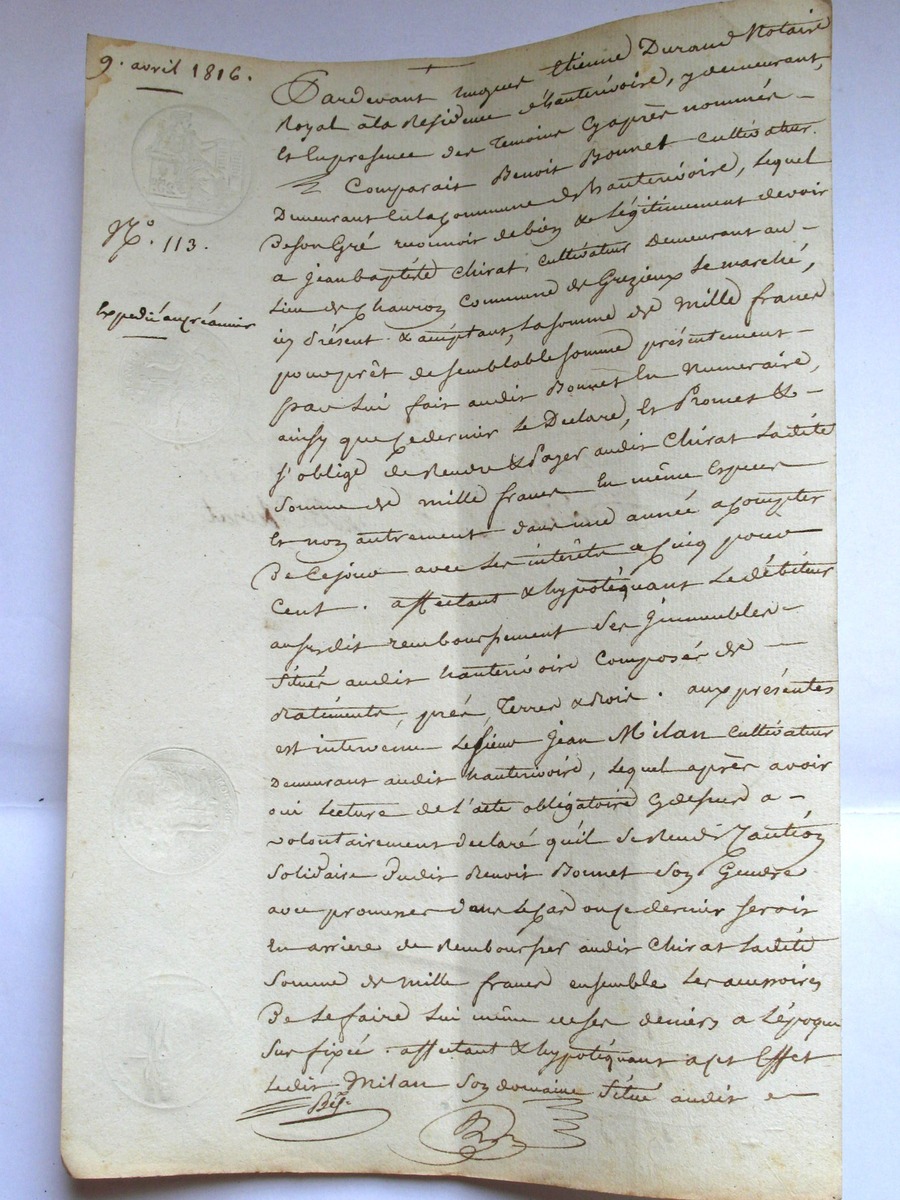 9. avril 1816.
Pardevant Etienne Durand Notaire
Royal à la Residence d'hauterivoire, y demeurant,
et En presence des Temoins Cyaprès nommés -
Comparait Benoit Bonnet Cultivateur.
Demeurant En la Commune d'hauterivoire, Lequel
De son Gré reconnoit debien & Légitimement devoir
N.º 113.
a Jean baptiste Chirat, cultivateur Demeurant au -
Lieu de Commune de Grezieux Le marché,
Expedié au créancier
icy Présent & acceptant, La somme de Mille francs
pour prêt de semblable somme présentement -
par Lui fait audit Bonnet En Numeraire,
ainsy que Ce dernier Le Declare, Et Promet & -
s'oblige de Rendre & Payer audit Chirat Ladite
Somme de mille francs En même Especes
Et non autrement dans une année a Compter
De Ce jour avec Les intérêts a Cinq pour
Cent. affectant & hypotéquant Le débiteur
ausudit remboursement Ses Jmmeubles -
Situés audit hauterivoire Composés de —
Batiments, prés, Terres & Bois. aux présentes
est intervenu Le sieur Jean Milan Cultivateur
Demeurant audit hauterivoire, Lequel après avoir
oui Lecture de L'acte obligatoire Cydessus a -
volontairement declaré qu'il Se Rend Caution
Solidaire dudit Benoit Bonnet Son Gendre
avec promesse dans Le Cas ou Ce dernier Seroit
En arriere de Rembourser audit Chirat Ladite
Somme de Mille francs ensemble Les accessoires
De Le faire Lui même de Ses deniers a L'époque
Sus fixée. affectant & hypotéquant a Cet Effet
Ledit Milan Son domaine Situé audit